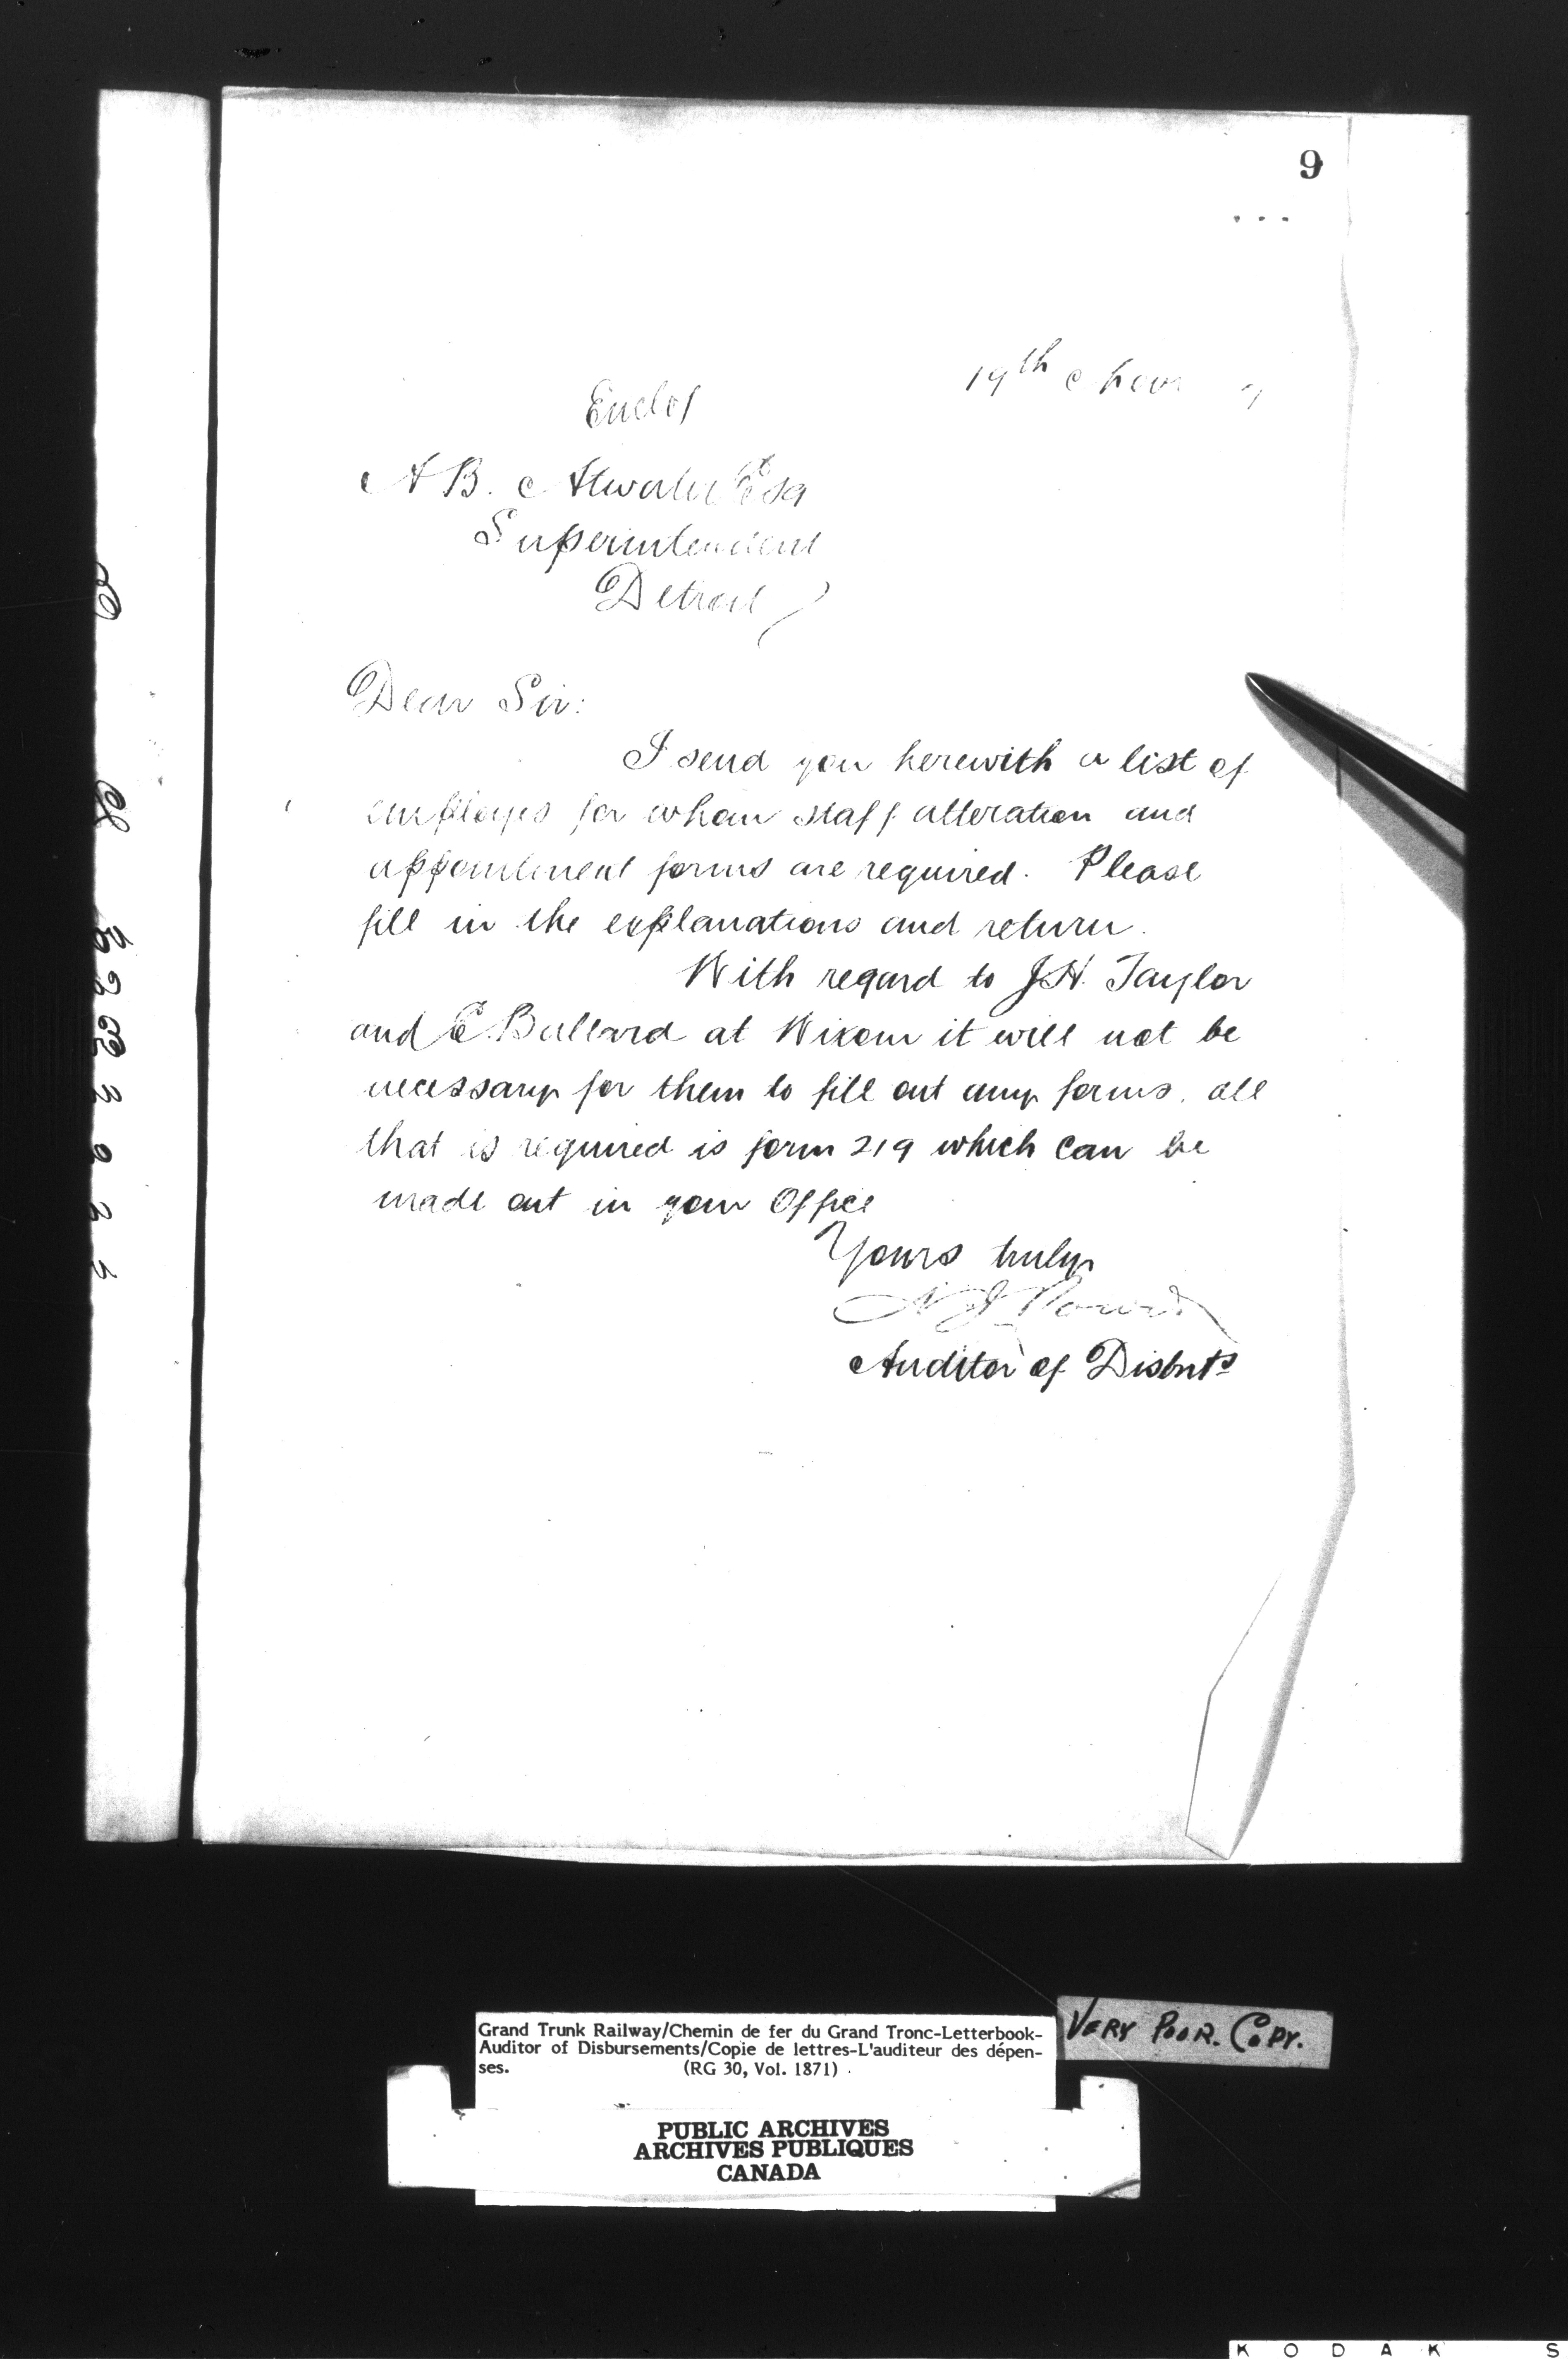 9
19th Nov
Enclos
A B. Atwater Esq
Superintendent
Detroit
Dear Sir:
I send you herewith a list of
employes for whom staff alteration and
appointment forms are required. Please
fill in the explanations and return.
With regard to J.H. Taylor
and E. Bullard at Wixom it will not be
necessary for them to fill out any forms. all
that is required is form 219 which can be
made out in your Office
Yours truly
Auditor of Disbnts
Grand Trunk Railway/Chemin de fer du Grand Tronc-Letterbook-
Auditor of Disbursements/Copie de lettres-L'auditeur des dépen-
ses. (RG 30, Vol. 1871)
VERY POOR. COPY.
PUBLIC ARCHIVES
ARCHIVES PUBLIQUES
CANADA
KODAK S